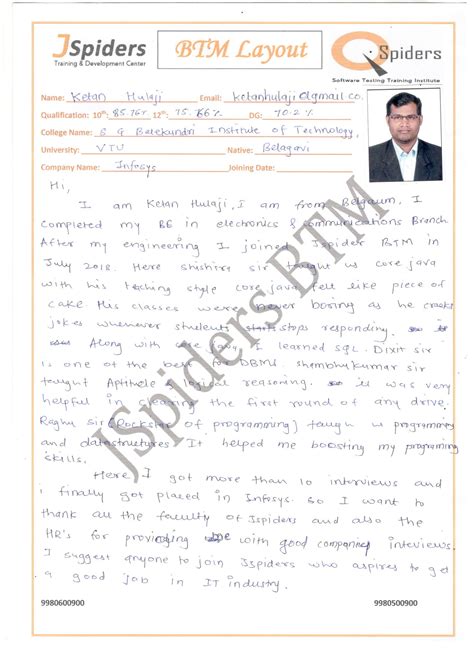 JSpiders
Training & Development Center
BTM LAYOUT
QSpiders
Software Testing Training Institute
Name: Ketan Hulaji Email: ketanhulaji@gmail.co.
Qualification: 10th: 85.76% 12th: 75.66% DG: 70.2%
College Name: S G Balekundri Institute of Technology,
University: VTU Native: Belagavi
Company Name: Infosys Joining Date:
Hi,
I am Ketan Hulaji, I am from Belgaum, I
completed my BE in electronics & communications Branch
After my engineering I joined Jspider BTM in
July 2018. Here shishira sir taught us core java
with his teching style core java felt like piece of
cake His classes were never boring as he cracks
jokes whenever students stops responding.
Along with core java, I learned SQL. Dixit sir
is one of the best for DBMS, shambhukumar sir
taught Aptitude & logical reasoning. it was very
helpful in clearing the first round of any drive.
Raghu sir (Rockstar of programming) taugh us programming
and datastructures It helped me boosting my programing
skills.
Here I got more than 10 interviews and
i finally got placed in Infosys. So I want to
thank all the faculty of Jspiders and also the
HR's for providing with good companies interviews.
I suggest anyone to join Jspiders who aspires to get
a good job in IT industry.
JSpiders BTM
9980600900 9980500900